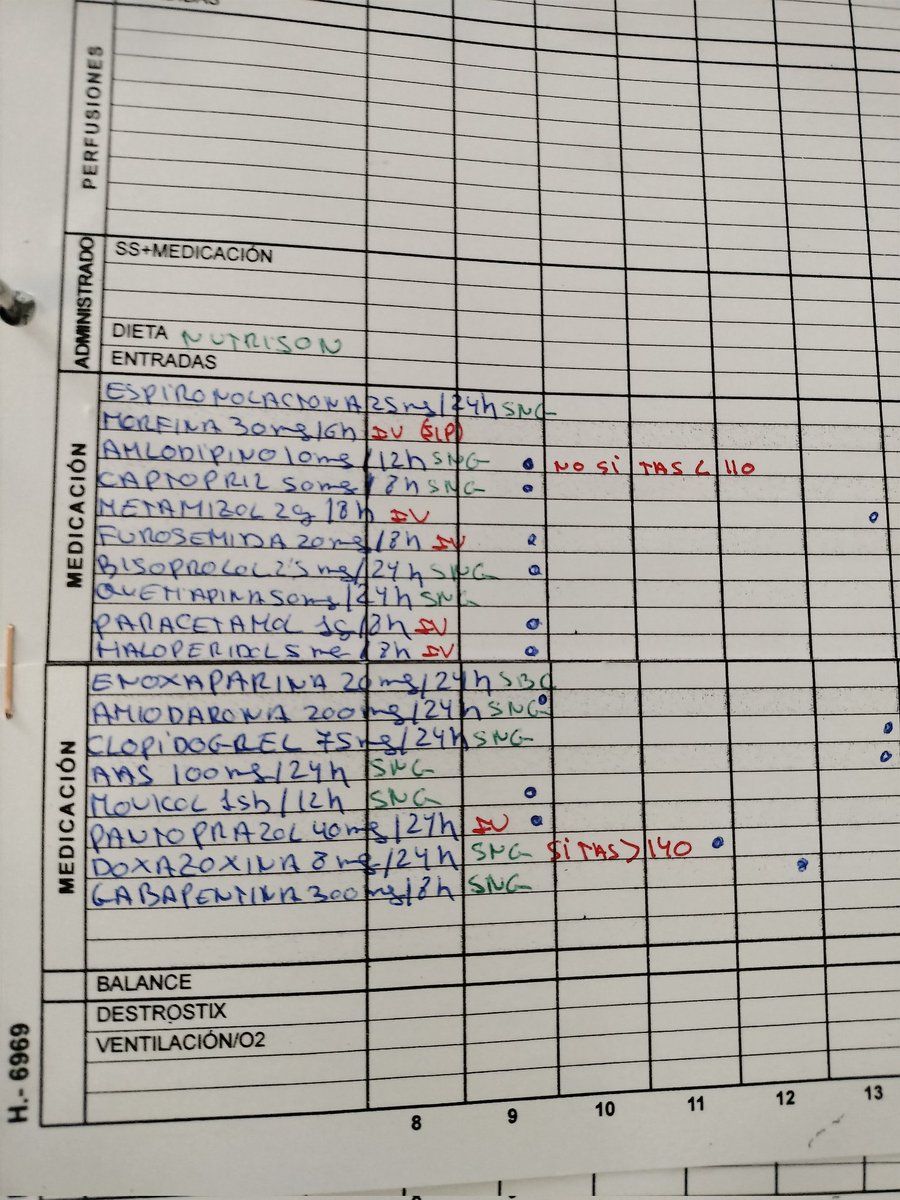 PERFUSIONES
ADMINISTRADO
SS+MEDICACIÓN
DIETA NUTRISON
ENTRADAS
MEDICACIÓN
ESPIRONOLACTONA 25mg/24h SNG
MORFINA 30mg/6h IV (SIP)
AMLODIPINO 10mg/12h SNG NO SI TAS < 110
CAPTOPRIL 50mg/8h SNG
METAMIZOL 2g/8h IV
FUROSEMIDA 20mg/8h IV
BISOPROLOL 2'5mg/24h SNG
QUETIAPINA 50mg/24h SNG
PARACETAMOL 1g/8h IV
HALOPERIDOL 5mg/8h IV
MEDICACIÓN
ENOXAPARINA 20mg/24h SBC
AMIODARONA 200mg/24h SNG
CLOPIDOGREL 75mg/24h SNG
AAS 100mg/24h SNG
MOVICOL 1sb/12h SNG
PANTOPRAZOL 40mg/24h IV
DOXAZOXINA 8mg/24h SNG SI TAS > 140
GABAPENTINA 300mg/8h SNG
BALANCE
DESTROSTIX
VENTILACIÓN/O2
H.- 6969
8 9 10 11 12 13